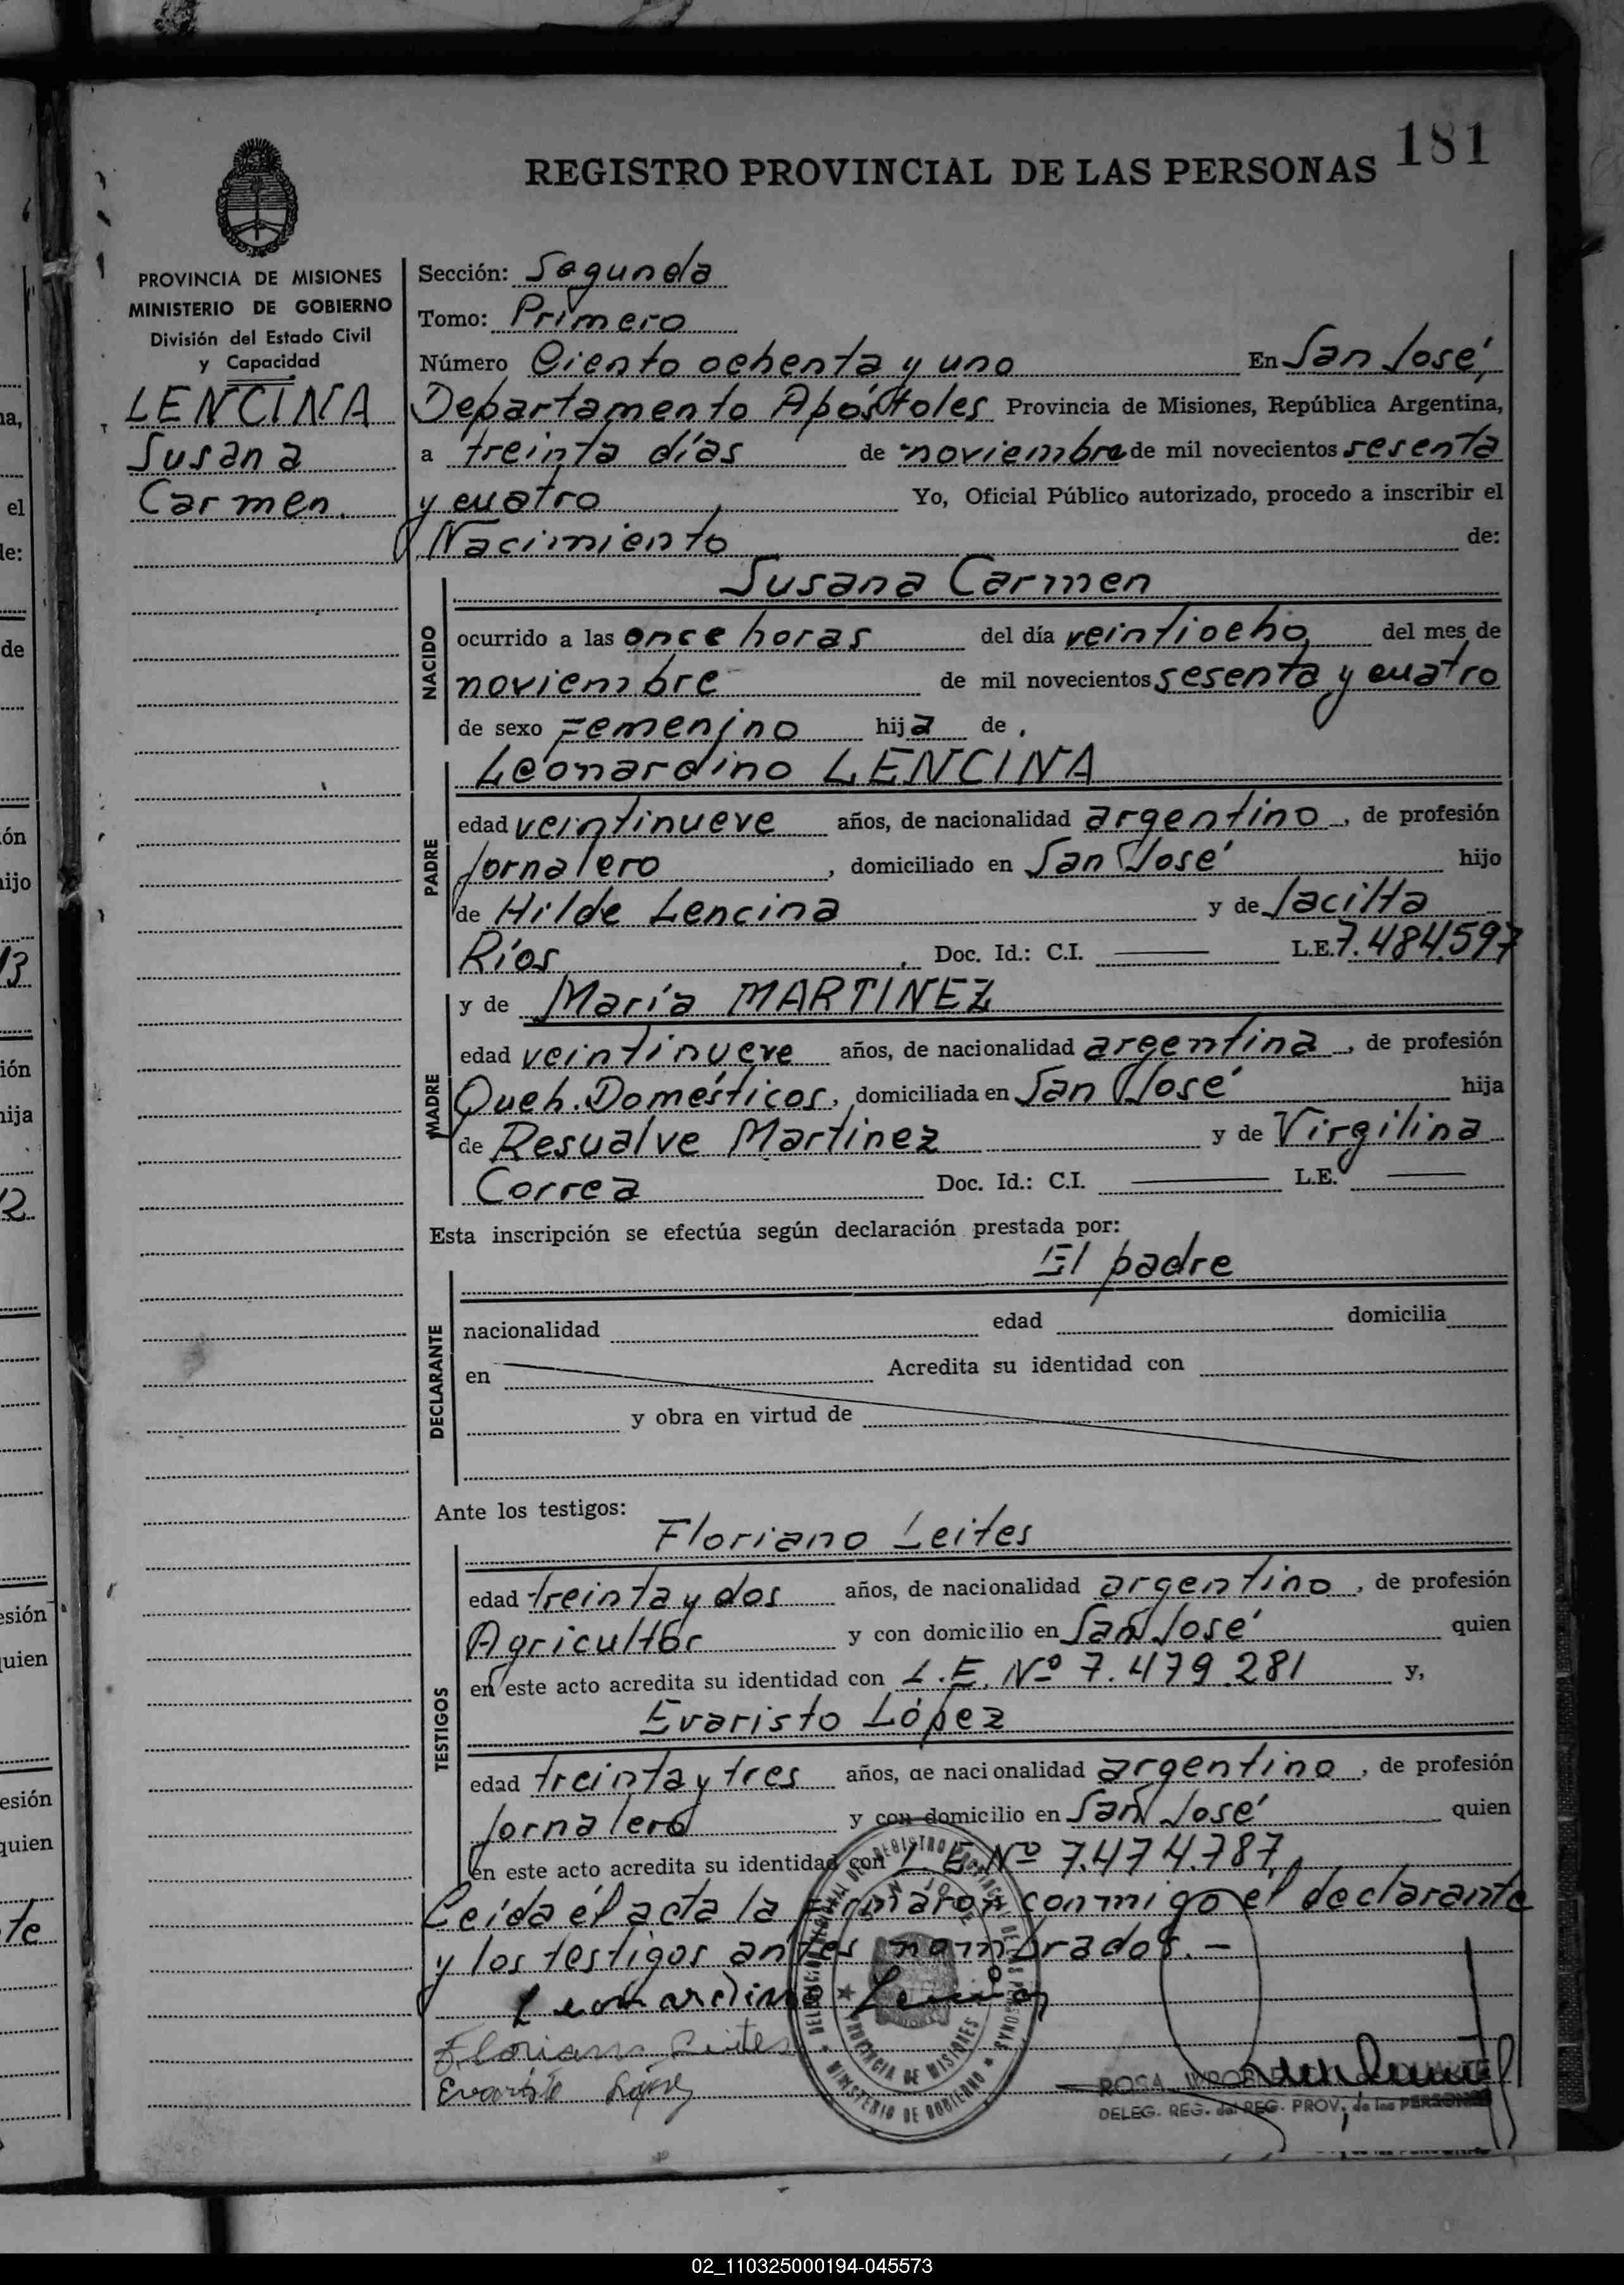 181
REGISTRO PROVINCIAL DE LAS PERSONAS
PROVINCIA DE MISIONES
MINISTERIO DE GOBIERNO
División del Estado Civil
y Capacidad
LENCINA
Susana
Carmen.
Sección: Segunda
Tomo: Primero
Número Ciento ochenta y uno En San José,
Departamento Apóstoles Provincia de Misiones, República Argentina,
a treinta días de noviembre de mil novecientos sesenta
y cuatro Yo, Oficial Público autorizado, procedo a inscribir el
Nacimiento de:
Susana Carmen
NACIDO
ocurrido a las once horas del día veintiocho, del mes de
noviembre de mil novecientos sesenta y cuatro
de sexo Femenino hija de,
Leonardino LENCINA
PADRE
edad veintinueve años, de nacionalidad argentino, de profesión
Jornalero, domiciliado en San José hijo
de Hilde Lencina y de Jacilta
Ríos, Doc. Id.: C.I. —— L.E. 7.484.597
y de María MARTINEZ
MADRE
edad veintinueve años, de nacionalidad argentina, de profesión
Queh. Domésticos, domiciliada en San José hija
de Resualve Martinez y de Virgilina
Correa Doc. Id.: C.I. —— L.E. ——
Esta inscripción se efectúa según declaración prestada por:
El padre
DECLARANTE
nacionalidad edad domicilia
en Acredita su identidad con
y obra en virtud de
Ante los testigos:
Floriano Leites
TESTIGOS
edad treinta y dos años, de nacionalidad argentino, de profesión
Agricultor y con domicilio en San José quien
en este acto acredita su identidad con L.E. Nº 7.479.281 y,
Evaristo López
edad treinta y tres años, de nacionalidad argentino, de profesión
Jornalero y con domicilio en San José quien
en este acto acredita su identidad con L.E. Nº 7.474.787,
Leida él acta la firmaron conmigo el declarante
y los testigos antes nombrados.—
Leonardino Lencina
Floriano Leites
Evaristo López
PROVINCIA DE MISIONES
MINISTERIO DE GOBIERNO
ROSA
DELEG. REG. del REG. PROV. de las PERSONAS
02_110325000194-045573